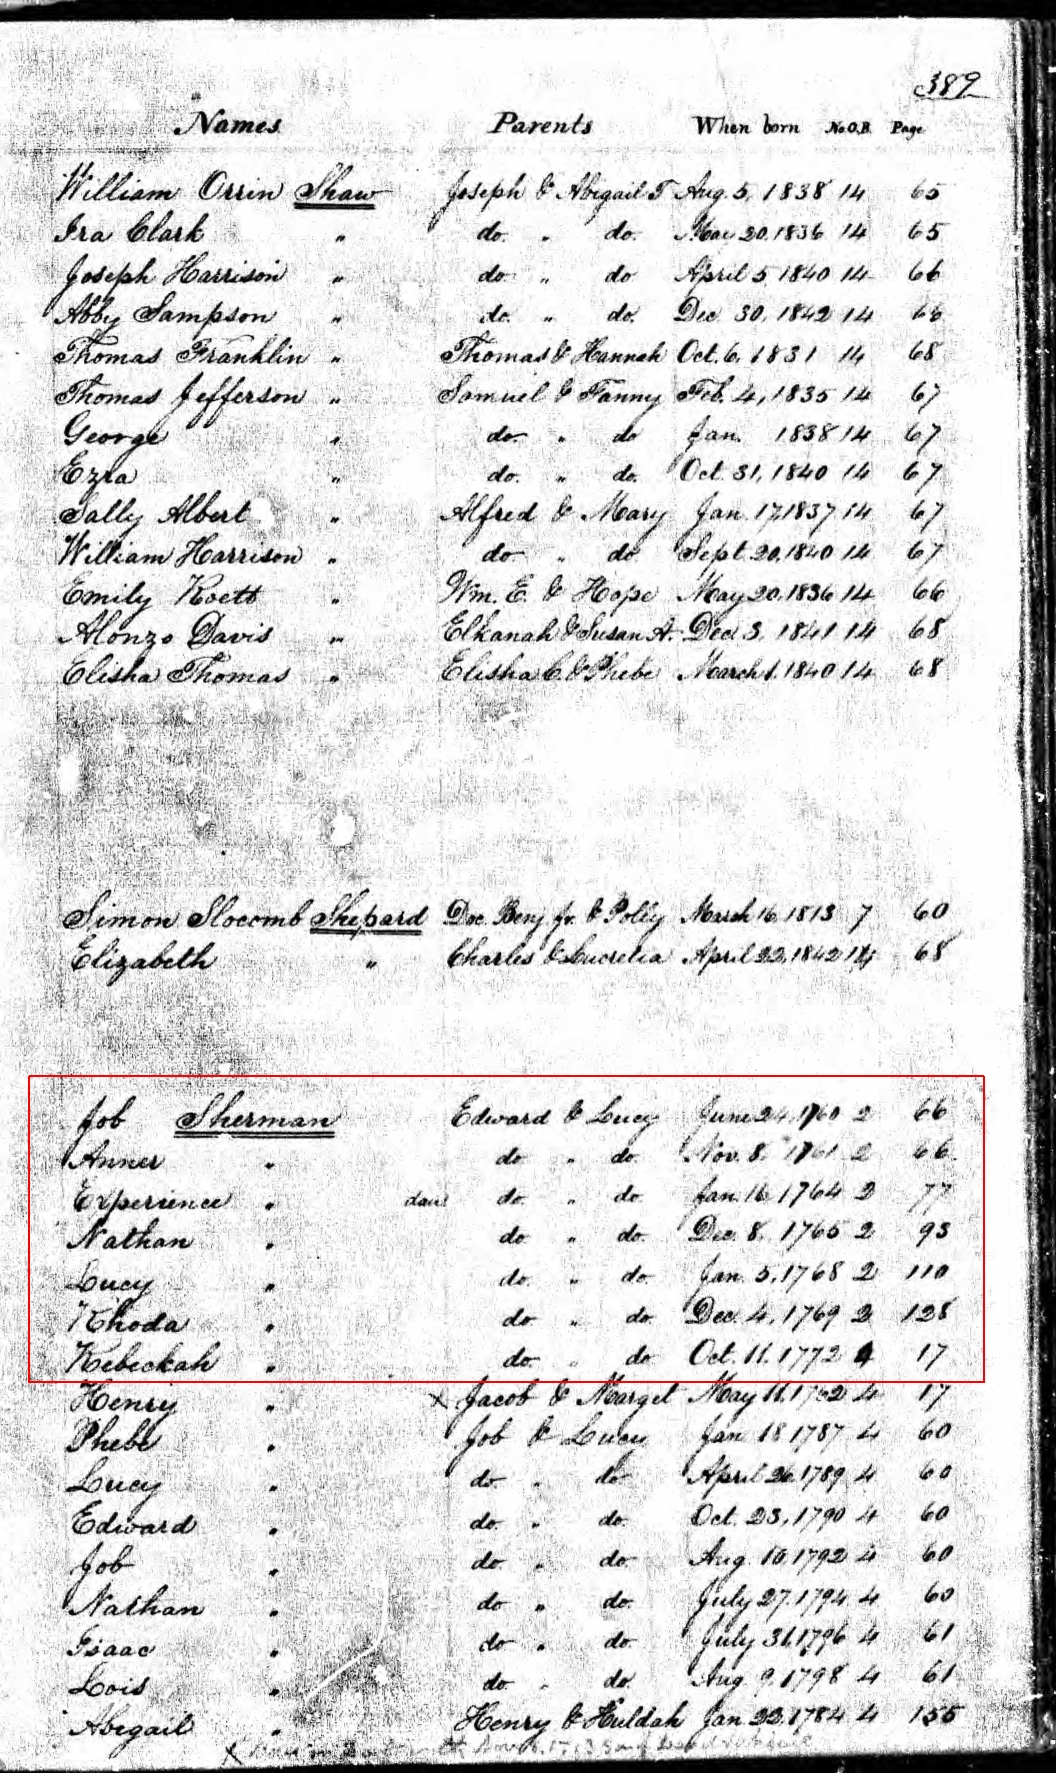 389
Names Parents When born No O.B. Page
William Orrin Shaw Joseph & Abigail T Aug. 5, 1838 14 65
Ira Clark " do. " do. Mar 20, 1836 14 65
Joseph Harrison " do " do April 5 1840 14 66
Abby Sampson " do. " do. Dec 30, 1842 14 66
Thomas Franklin " Thomas & Hannah Oct. 6, 1831 14 68
Thomas Jefferson " Samuel & Fanny Feb. 4, 1835 14 67
George " do " do Jan. 1838 14 67
Ezra " do. " do. Oct. 31, 1840 14 67
Sally Albert " Alfred & Mary Jan. 17, 1837 14 67
William Harrison " do " do Sept. 20, 1840 14 67
Emily " Wm. E. & Hope May 20, 1836 14 66
Alonzo Davis " Elkanah & Susan A. Dec. 3, 1841 14 68
Elisha Thomas " Elisha C. & Phebe March 1, 1840 14 68
Simon Slocomb Shepard Doc. Benj. Jr. & Polly March 16, 1813 7 60
Elizabeth " Charles & Lucretia April 22, 1842 14 68
Job Sherman Edward & Lucy June 24, 1760 2 66
Anner " do " do. Nov. 8, 1761 2 66
Experience " dau do. " do. Jan. 16, 1764 2 77
Nathan " do. " do. Dec. 8, 1765 2 93
Lucy " do. " do. Jan. 5, 1768 2 110
Rhoda " do. " do. Dec. 4, 1769 2 128
Rebeckah " do. " do Oct. 11, 1772 4 17
Henry " X Jacob & Marget May 11, 1762 4 17
Phebe " Job & Lucy Jan 18 1787 4 60
Lucy " do " do April 26, 1789 4 60
Edward " do. " do. Oct. 23, 1790 4 60
Job " do. " do. Aug. 10, 1792 4 60
Nathan " do. " do. July 27, 1794 4 60
Isaac " do " do. July 31, 1796 4 61
Lois " do. " do. Aug. 9, 1798 4 61
Abigail " Henry & Huldah Jan. 22, 1784 4 155
X